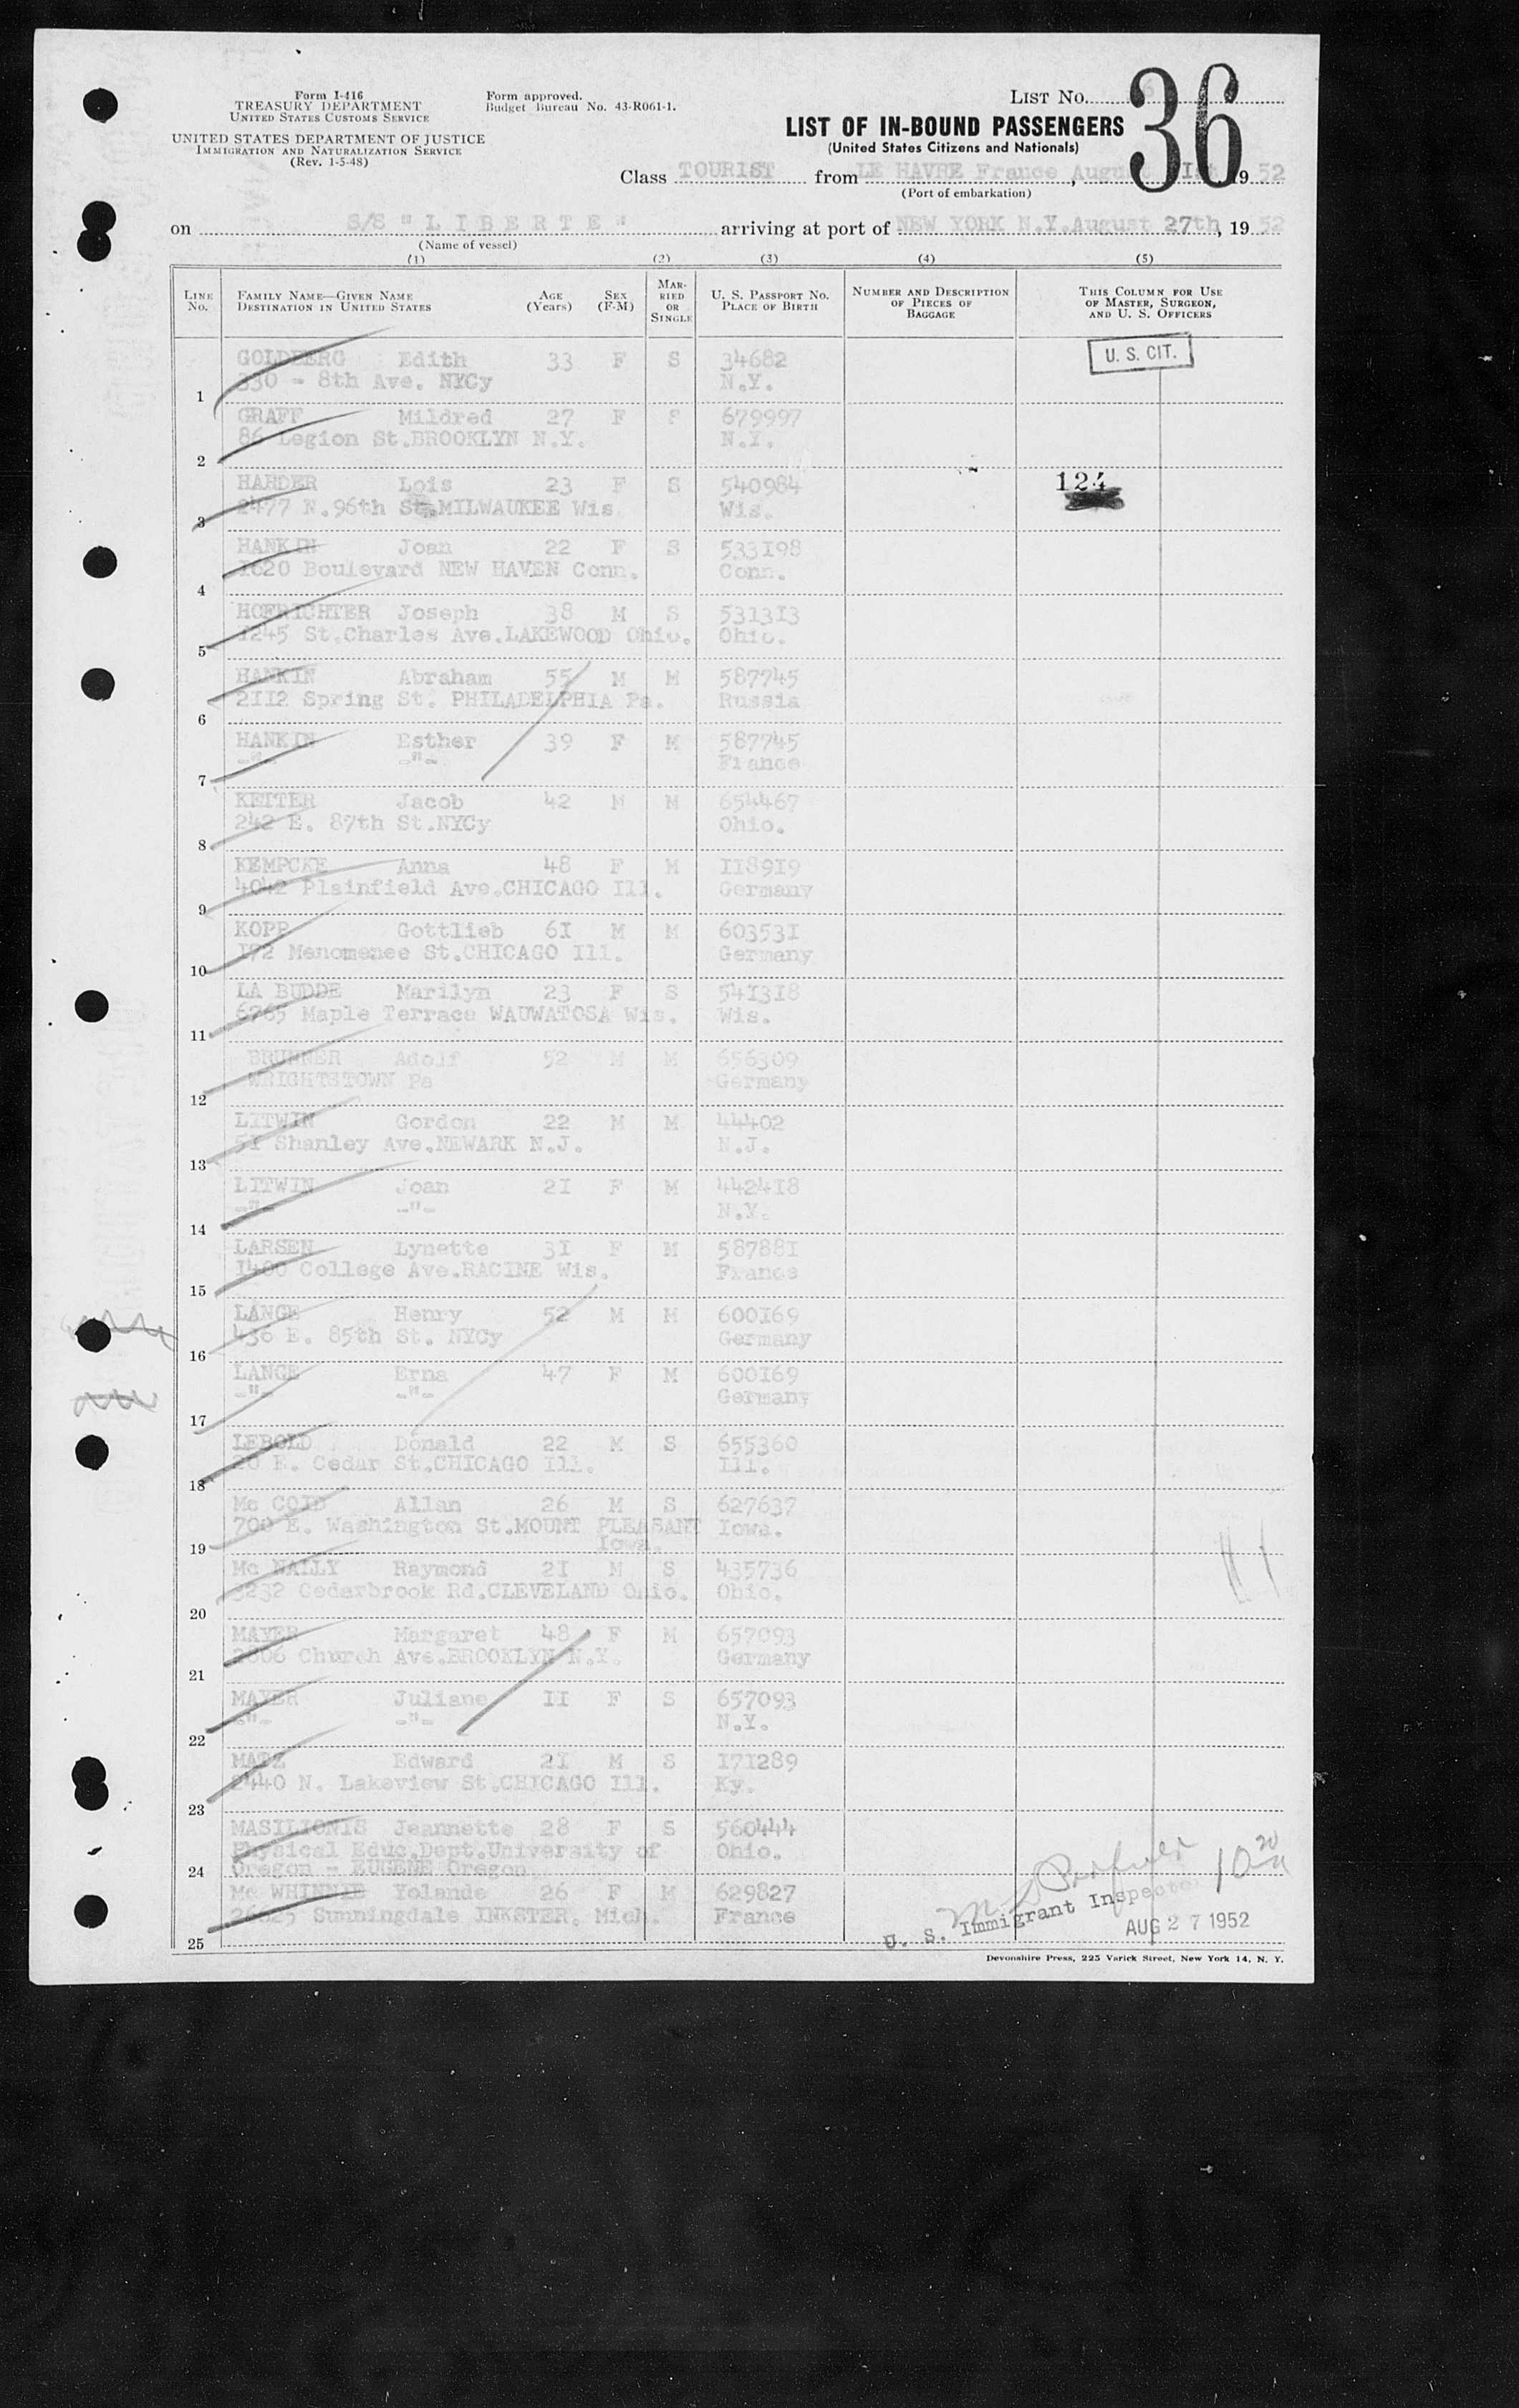 Form I-416
TREASURY DEPARTMENT
UNITED STATES CUSTOMS SERVICE
UNITED STATES DEPARTMENT OF JUSTICE
IMMIGRATION AND NATURALIZATION SERVICE
(Rev. 1-5-48)
Form approved.
Budget Bureau No. 43-R061-1.
LIST NO. 36
LIST OF IN-BOUND PASSENGERS
(United States Citizens and Nationals)
Class TOURIST from LE HAVRE France, August 19 52
(Port of embarkation)
on S/S "LIBERTE" arriving at port of NEW YORK N.Y. August 27th, 19 52
(Name of vessel)
(1) (2) (3) (4) (5)
LINE NO. FAMILY NAME—GIVEN NAME DESTINATION IN UNITED STATES AGE (Years) SEX (F-M) MARRIED OR SINGLE U. S. PASSPORT NO. PLACE OF BIRTH NUMBER AND DESCRIPTION OF PIECES OF BAGGAGE THIS COLUMN FOR USE OF MASTER, SURGEON, AND U. S. OFFICERS
GOLDBERG Edith 33 F S 34682 U. S. CIT.
1 330 - 8th Ave. NYCy N.Y.
GRAFF Mildred 27 F S 679997
2 86 Legion St.BROOKLYN N.Y. N.Y.
HARDER Lois 23 F S 540984 124
3 2477 N.96th St.MILWAUKEE Wis Wis.
HANKIN Joan 22 F S 533198
4 1620 Boulevard NEW HAVEN Conn. Conn.
HOFRICHTER Joseph 38 M S 531313
5 1245 St.Charles Ave.LAKEWOOD Ohio. Ohio.
HANKIN Abraham 55 M M 587745
6 2112 Spring St. PHILADELPHIA Pa. Russia
HANKIN Esther 39 F M 587745
7 -"- -"- France
KEITER Jacob 42 M M 654467
8 242 E. 87th St.NYCy Ohio.
KEMPCKE Anna 48 F M 118919
9 4042 Plainfield Ave.CHICAGO Ill. Germany
KOPP Gottlieb 61 M M 603531
10 172 Menomenee St.CHICAGO Ill. Germany
LA BUDDE Marilyn 23 F S 541318
11 6765 Maple Terrace WAUWATOSA Wis. Wis.
BRUNNER Adolf 52 M M 656309
12 WRIGHTSTOWN Pa Germany
LITWIN Gordon 22 M M 44402
13 51 Shanley Ave.NEWARK N.J. N.J.
LITWIN Joan 21 F M 442418
14 -"- -"- N.Y.
LARSEN Lynette 31 F M 587881
15 1400 College Ave.RACINE Wis. France
LANGE Henry 52 M M 600169
16 436 E. 85th St. NYCy Germany
LANGE Erna 47 F M 600169
17 -"- -"- Germany
LEBOLD Donald 22 M S 655360
18 20 E. Cedar St.CHICAGO Ill. Ill.
Mc COID Allan 26 M S 627637
700 E. Washington St.MOUNT PLEASANT Iowa.
19 Iowa.
Mc NALLY Raymond 21 M S 435736
20 3232 Cedarbrook Rd.CLEVELAND Ohio. Ohio.
MAYER Margaret 48 F M 657093
21 2806 Church Ave.BROOKLYN N.Y. Germany
MAYER Juliane 11 F S 657093
22 -"- -"- N.Y.
MATZ Edward 21 M S 171289
23 2440 N. Lakeview St.CHICAGO Ill. Ky.
MASILIONIS Jeannette 28 F S 560444
Physical Educ.Dept.University of Ohio.
24 Oregon - EUGENE Oregon
Mc WHINNIE Yolande 26 F M 629827
25 Sunningdale INKSTER. Mich. France
U. S. Immigrant Inspector
AUG 27 1952
Devonshire Press, 225 Varick Street, New York 14, N. Y.